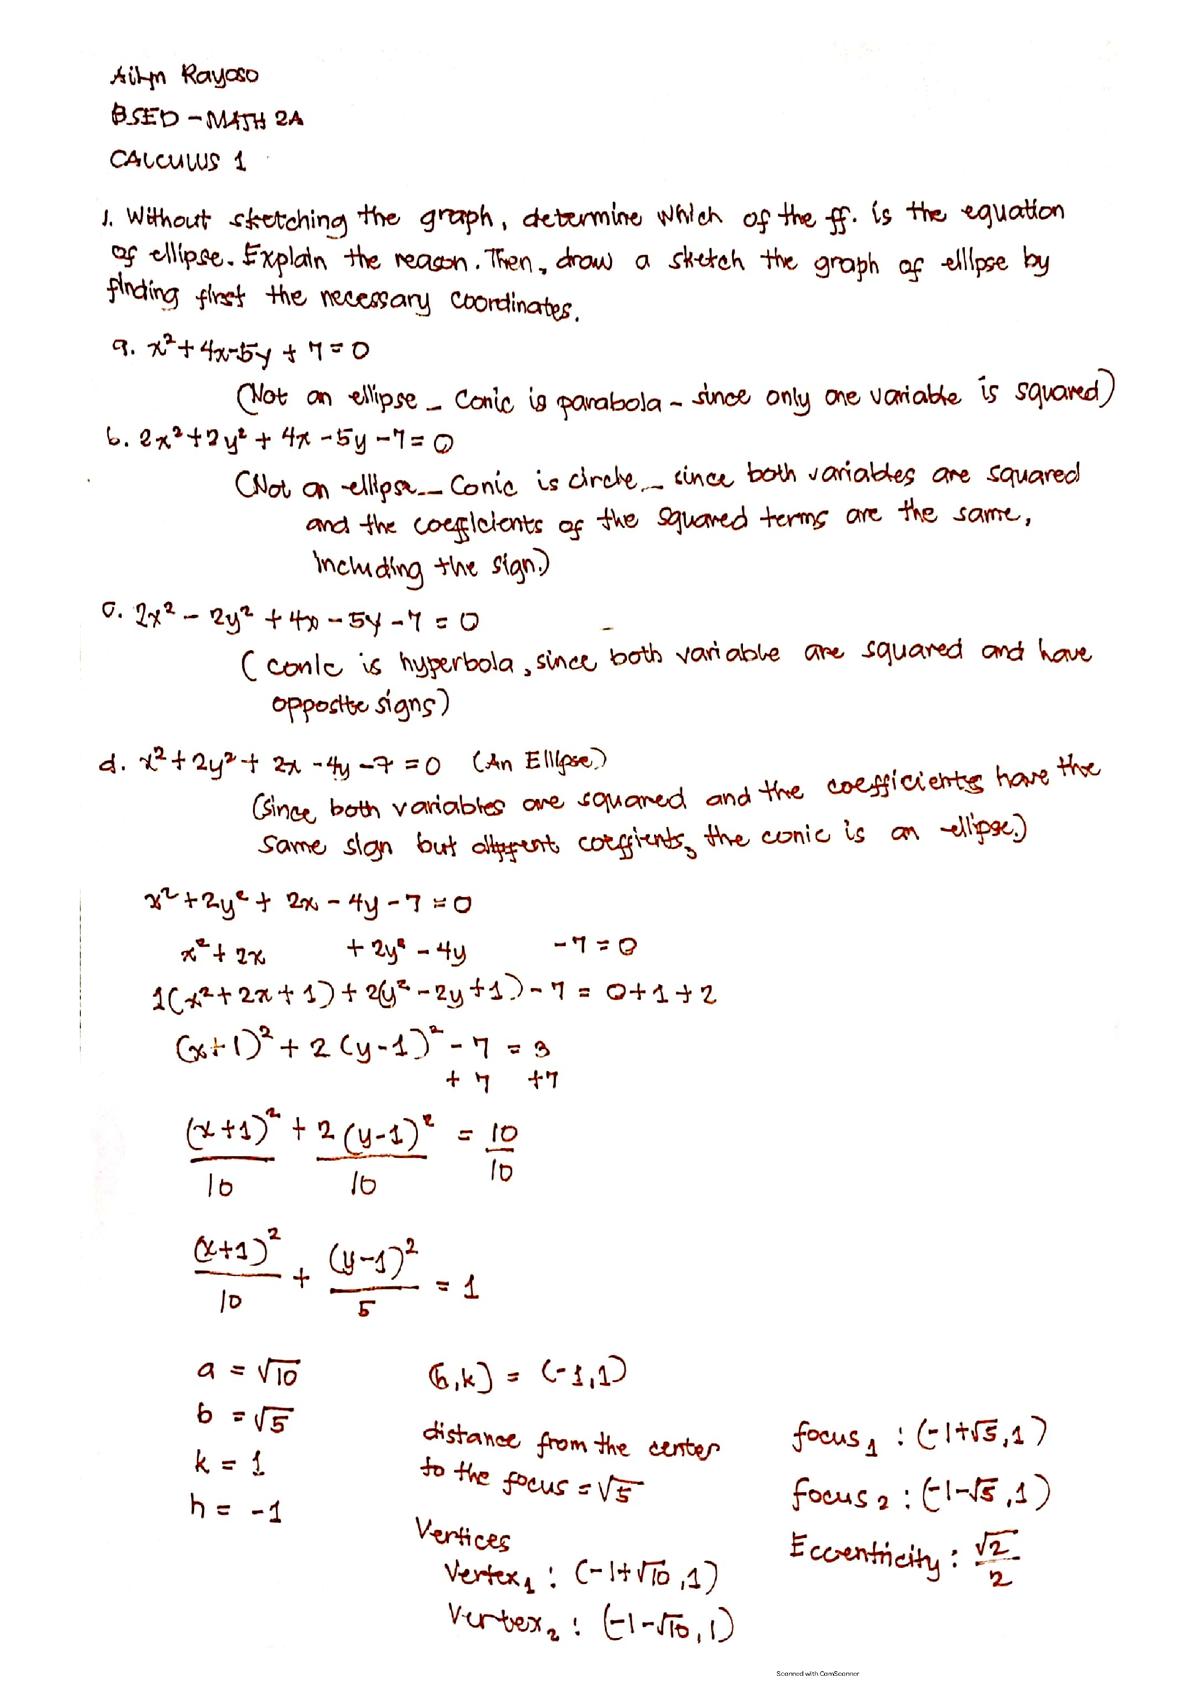 Ailyn Rayoso
BSED - MATH 2A
CALCULUS 1
1. Without sketching the graph, determine which of the ff. is the equation
of ellipse. Explain the reason. Then, draw a sketch the graph of ellipse by
finding first the necessary coordinates.
a. x²+4x-5y + 7=0
(Not an ellipse - Conic is parabola - since only one variable is squared)
b. 2x²+2y² + 4x -5y -7= 0
(Not an ellipse - Conic is circle - since both variables are squared
and the coefficients of the squared terms are the same,
including the sign.)
c. 2x² - 2y² + 4x - 5y - 7 = 0
( conic is hyperbola, since both variable are squared and have
opposite signs)
d. x²+ 2y²+ 2x -4y -7 =0 (An Ellipse)
(since both variables are squared and the coefficients have the
same sign but different coeffients, the conic is an ellipse.)
x²+2y²+ 2x - 4y - 7 = 0
x²+ 2x + 2y² - 4y -7 = 0
1(x²+2x+1)+2(y²-2y+1)-7 = 0+1+2
(x+1)²+ 2(y-1)² - 7 = 3
+ 7 +7
(x+1)² + 2(y-1)² = 10
10 10 10
(x+1)² + (y-1)² = 1
10 5
a = √10 (h,k) = (-1,1)
b = √5
distance from the center focus₁ : (-1+√5,1)
k = 1
to the focus = √5
h = -1
focus₂ : (-1-√5,1)
Vertices
Eccentricity : √2
2
Vertex₁ : (-1+√10,1)
Vertex₂ : (-1-√10,1)
Scanned with CamScanner